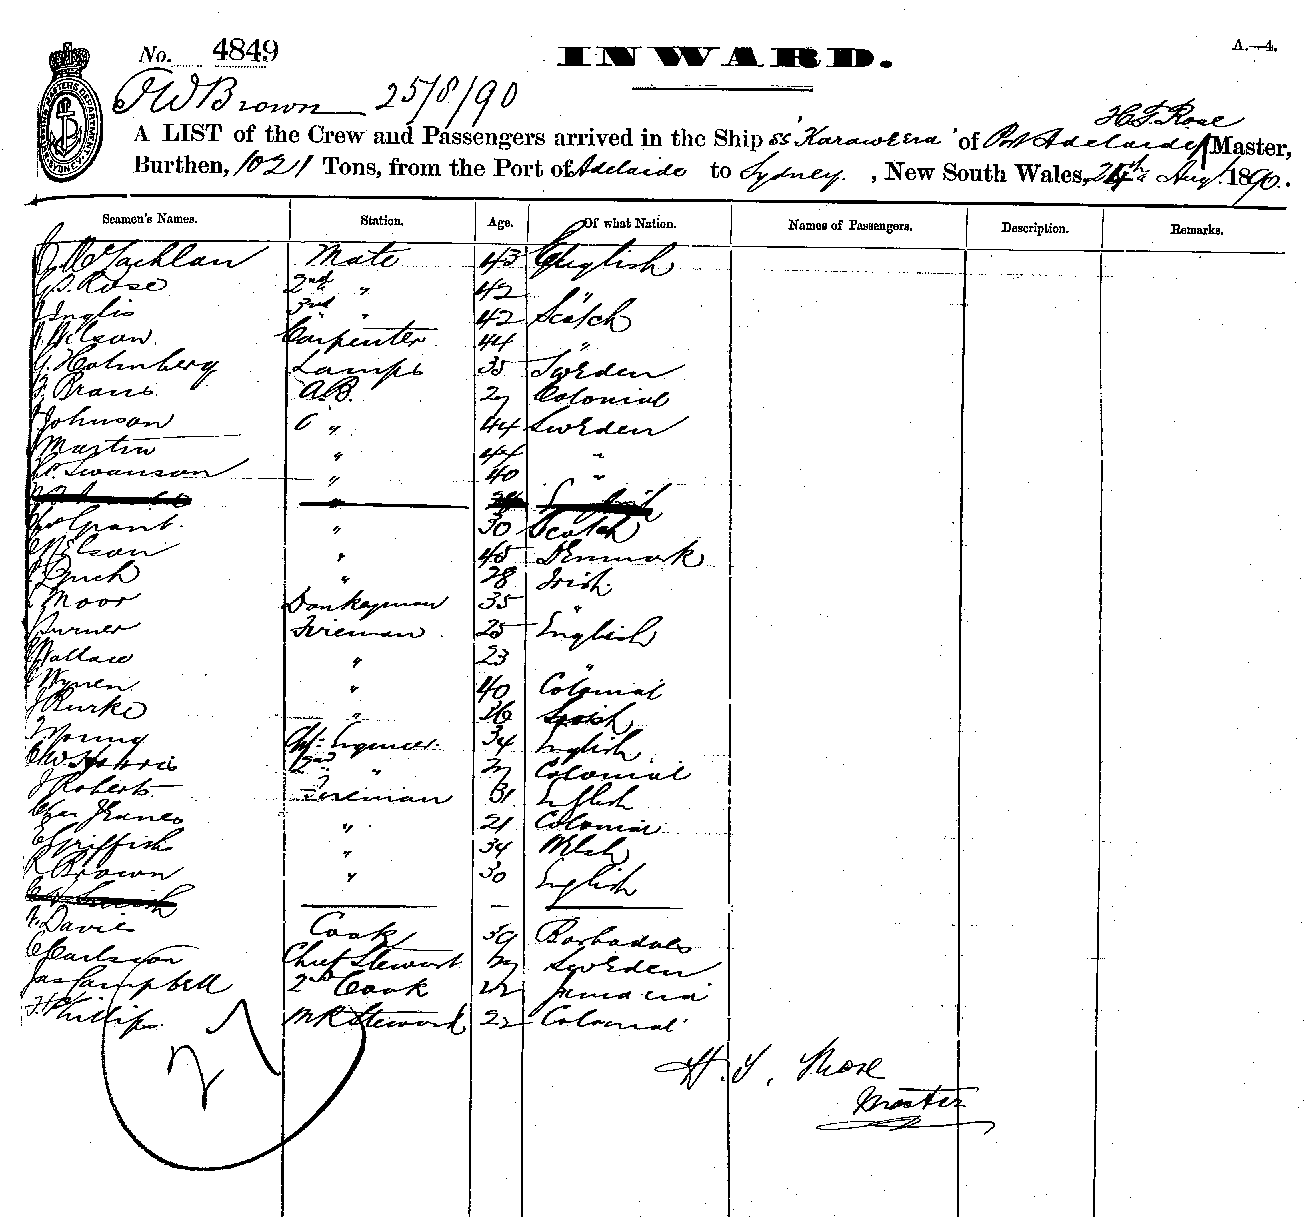 No. 4849
INWARD.
A.—4.
J W Brown 25/8/90
H. T. Rose
A LIST of the Crew and Passengers arrived in the Ship SS "Karaweera" of Pt Adelaide Master,
Burthen, 1021 Tons, from the Port of Adelaide to Sydney. , New South Wales, 24th Augt 1890.
Seamen's Names. Station. Age. Of what Nation. Names of Passengers. Description. Remarks.
McLachlan Mate 43 English
Rose 2nd " 42 "
Inglis 3rd " 42 Scotch
Wilson Carpenter 44 "
Holmberg Lamps 35 Sweden
Brans A.B. 27 Colonial
Johnson " 44 Sweden
Martin " 44 "
Swanson " 40 "
"
Grant " 30 Scotch
Nelson " 45 Denmark
Lynch " 28 Irish
Moor Donkeyman 35 "
Turner Fireman 25 English
Wallace " 23 "
Wynen " 40 Colonial
J Burke " 36 Irish
Young Chf. Engineer 34 English
Harris 2nd " 27 Colonial
J Roberts Fireman 31 English
Chas Jeanes " 21 Colonial
E Griffith " 34 Welsh
R Brown " 30 English
Smith
Davies Cook 39 Barbadoes
C Carlsson Chief Stewart 27 Sweden
Jas Campbell 2nd Cook 22 Jamacia
H Phillips M R Steward 22 Colonial
27
H. T. Rose
Master